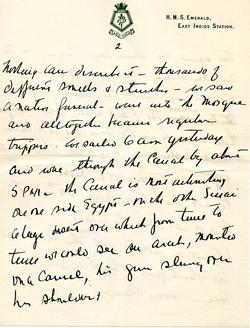 H.M.S. Emerald,
East Indies Station.
2
Nothing can describe it - thousands of
different smells & stenches - we saw
a native funeral - went into the Mosque
and altogether became regular
trippers. We sailed 6am yesterday
and were through the Canal by about
5 P.M. the Canal is most interesting
on one side Egypt - on the other Sinai
a large desert over which from time to
time we could see an arab, mounted
on a camel, his gun slung over
his shoulder!